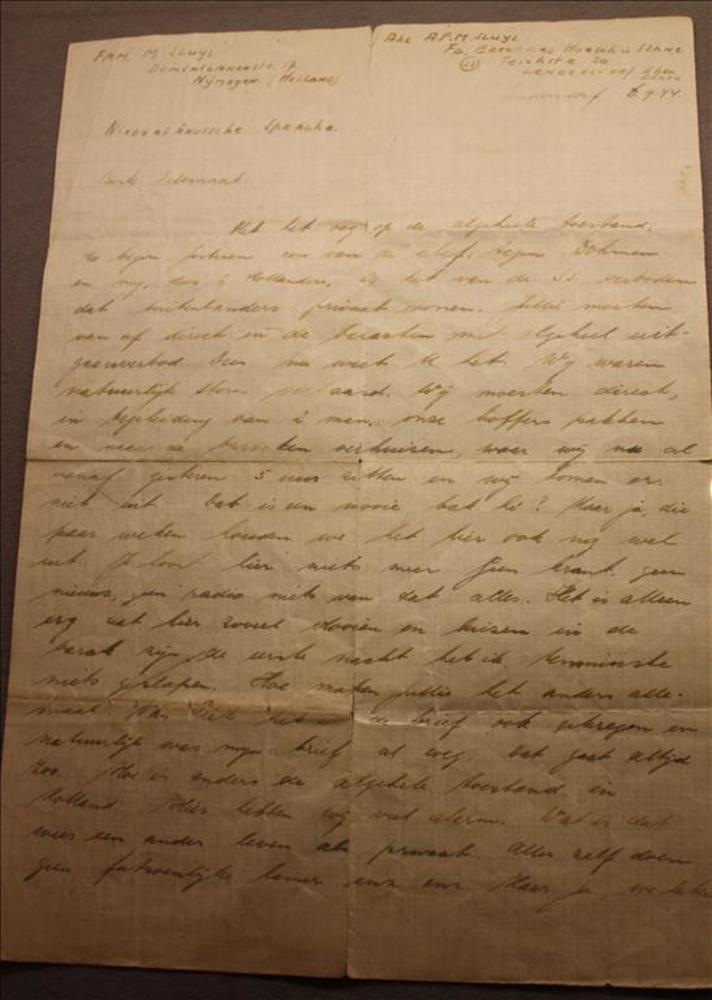 FAM. M. SLUYS
17
Nijmegen (Holland)
Abs A.F.M. SLUYS
Fa. Hoesch & Söhne
Teichstr 20
6.9.44
Niederländische Sprache.
Beste Allemaal.
Met het oog op de algehele toestand,
zo begon gisteren een van de chefs tegen Dohmen
en mij, dus 2 Hollanders, is het van de S.S. verboden
dat buitenlanders privaat wonen. Jullie moeten
van af direct in de baracken met algeheel uit-
gaansverbod. Dus nu weet U het. Wij waren
natuurlijk stom verbaasd. Wij moesten direct,
in begeleiding van 2 man, onze koffers pakken
en naar de baracken verhuizen, waar wij nu al
vanaf gisteren 5 uur zitten en wij komen er
niet uit. Dat is een mooie bak hè? Maar ja, die
paar weken houden we het hier ook nog wel
uit. Je hoort hier niets meer. Geen krant, geen
nieuws, geen radio niets van dat alles. Het is alleen
erg dat hier zoveel vlooien en luizen in de
barak zijn, de eerste nacht heb ik tenminste
niets geslapen. Hoe maken jullie het anders alle-
maal. Van heb de brief ook gekregen en
natuurlijk was mijn brief al weg. Dat gaat altijd
zoo. Hoe is anders de algehele toestand in
Holland. Hier hebben wij veel alarm. Wat is dat
weer een ander leven als privaat. Alles zelf doen
geen fatsoenlijke kamer enz enz. Maar ja, we